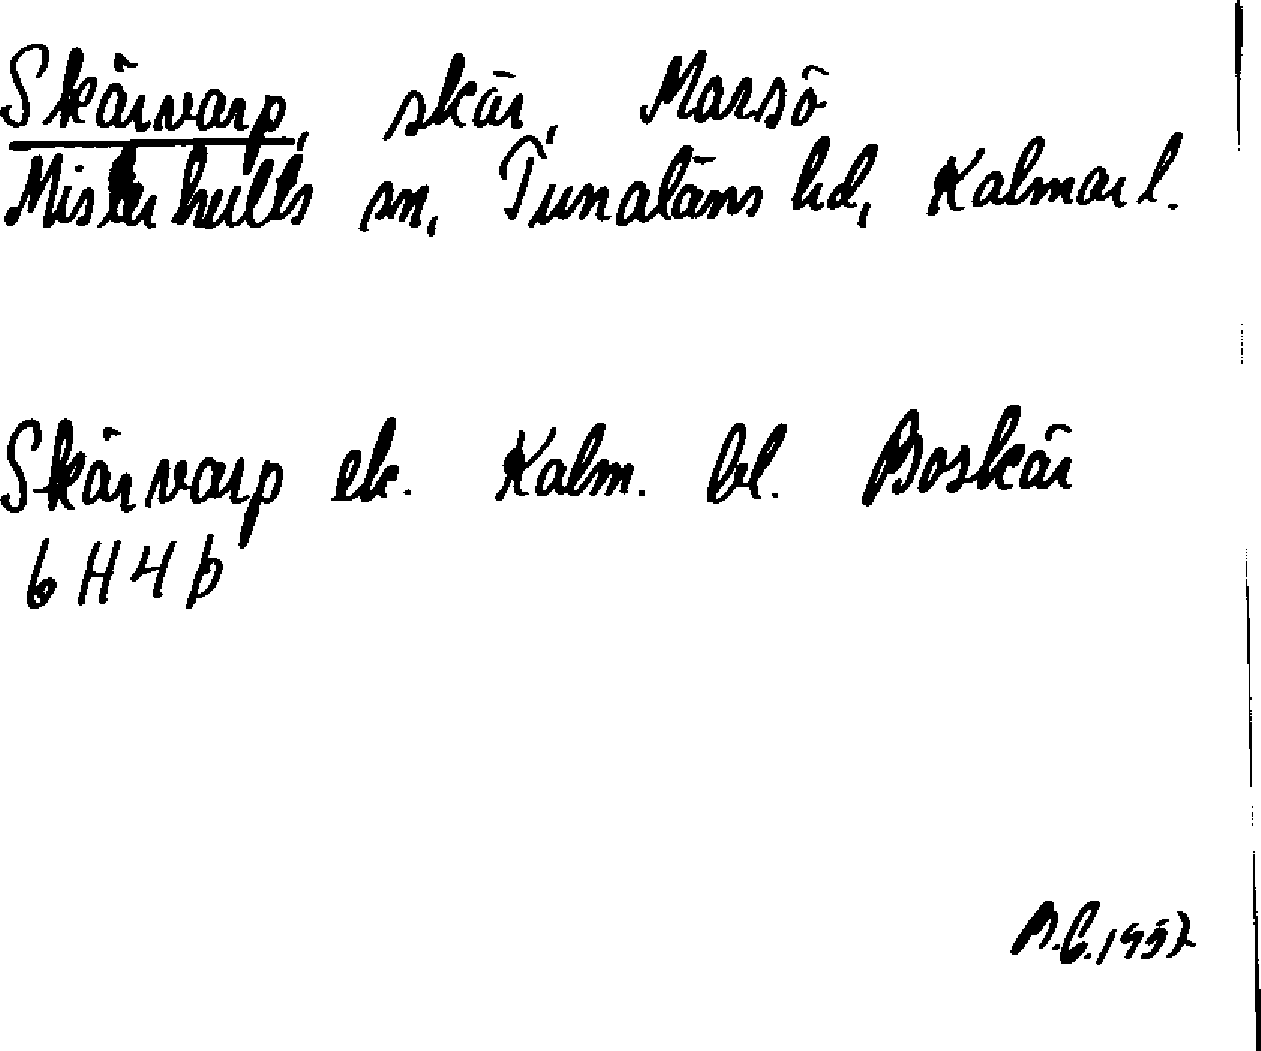 Skärvarp, skär, Marsö
Misterhults sn, Tunaläns hd, Kalmar l.
Skärvarp ek. Kalm. bl. Boskär
6 H 4 b